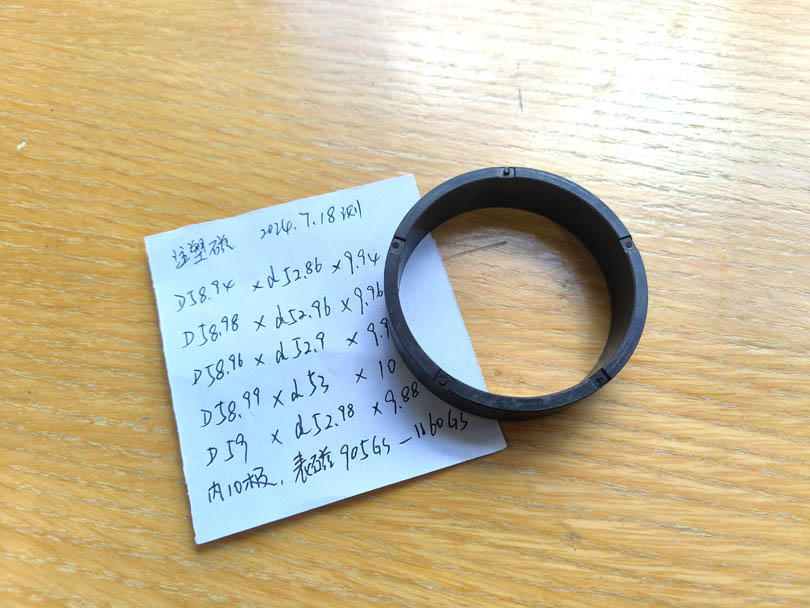 注塑磁 2024.7.18测
D58.94 × d52.86 × 9.94
D58.98 × d52.96 × 9.96
D58.96 × d52.9 × 9.9
D58.99 × d53 × 10
D59 × d52.98 × 9.88
内10极，表磁905GS—1160GS